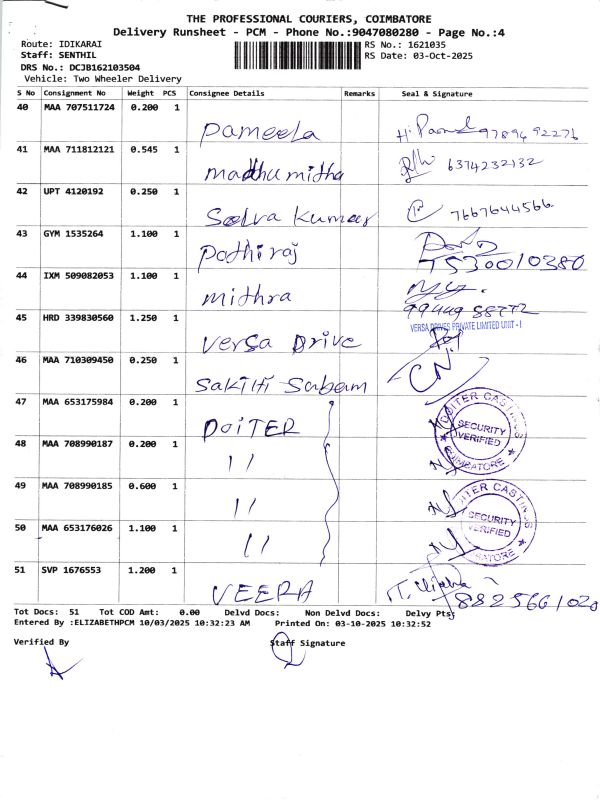 THE PROFESSIONAL COURIERS, COIMBATORE
Delivery Runsheet - PCM - Phone No.:9047080280 - Page No.:4
Route: IDIKARAI
RS No.: 1621035
Staff: SENTHIL
RS Date: 03-Oct-2025
DRS No.: DCJB162103504
Vehicle: Two Wheeler Delivery
S No Consignment No Weight PCS Consignee Details Remarks Seal & Signature
40 MAA 707511724 0.200 1 Pameela 9789492276
41 MAA 711812121 0.545 1 madhumitha 6374232132
42 UPT 4120192 0.250 1 Selva Kumar 7667644566
43 GYM 1535264 1.100 1 Pothiraj 7530010380
44 IXM 509082053 1.100 1 mithra 99449 88772
45 HRD 339830560 1.250 1 Versa Drive VERSA DRIVES PRIVATE LIMITED UNIT - I
46 MAA 710309450 0.250 1 Sakthi Sabam
47 MAA 653175984 0.200 1 DOITER DOITER CASTINGS SECURITY VERIFIED COIMBATORE
48 MAA 708990187 0.200 1 //
49 MAA 708990185 0.600 1 // DOITER CASTINGS SECURITY VERIFIED COIMBATORE
50 MAA 653176026 1.100 1 //
51 SVP 1676553 1.200 1 VEERA 8825661020
Tot Docs: 51 Tot COD Amt: 0.00 Delvd Docs: Non Delvd Docs: Delvy Pts:
Entered By :ELIZABETHPCM 10/03/2025 10:32:23 AM Printed On: 03-10-2025 10:32:52
Verified By Staff Signature